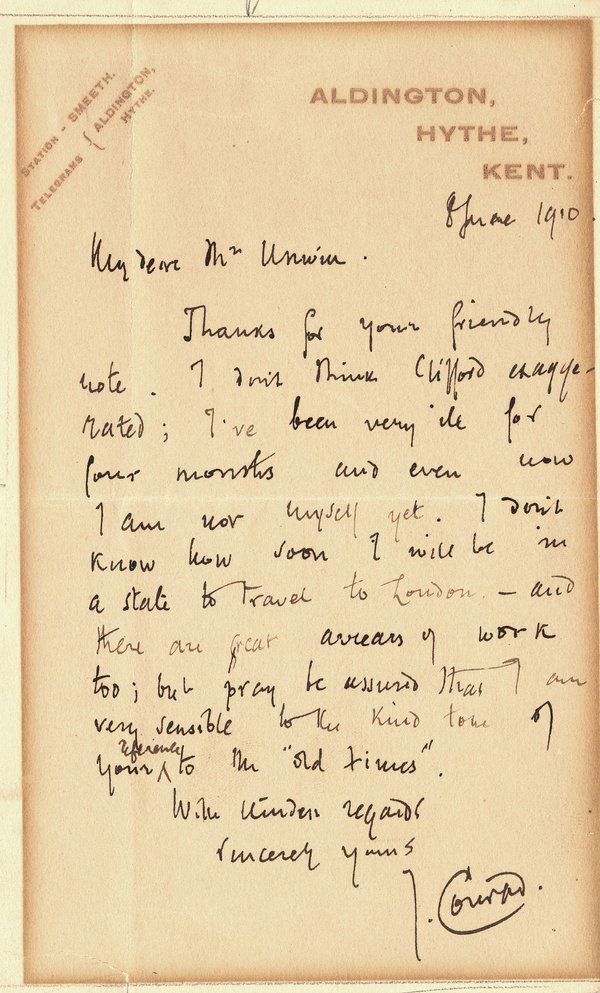 STATION - SMEETH.
TELEGRAMS { ALDINGTON,
HYTHE.
ALDINGTON,
HYTHE,
KENT.
8 June 1910.
My dear Mr Unwin.
Thanks for your friendly
note. I don't think Clifford exagge-
rated; I've been very ill for
four months and even now
I am not myself yet. I don't
know how soon I will be in
a state to travel to London - and
there are great arrears of work
too; but pray be assured that I am
very sensible to the kind tone of
your reference to the "old times".
With kindest regards
sincerely yours
J. Conrad.